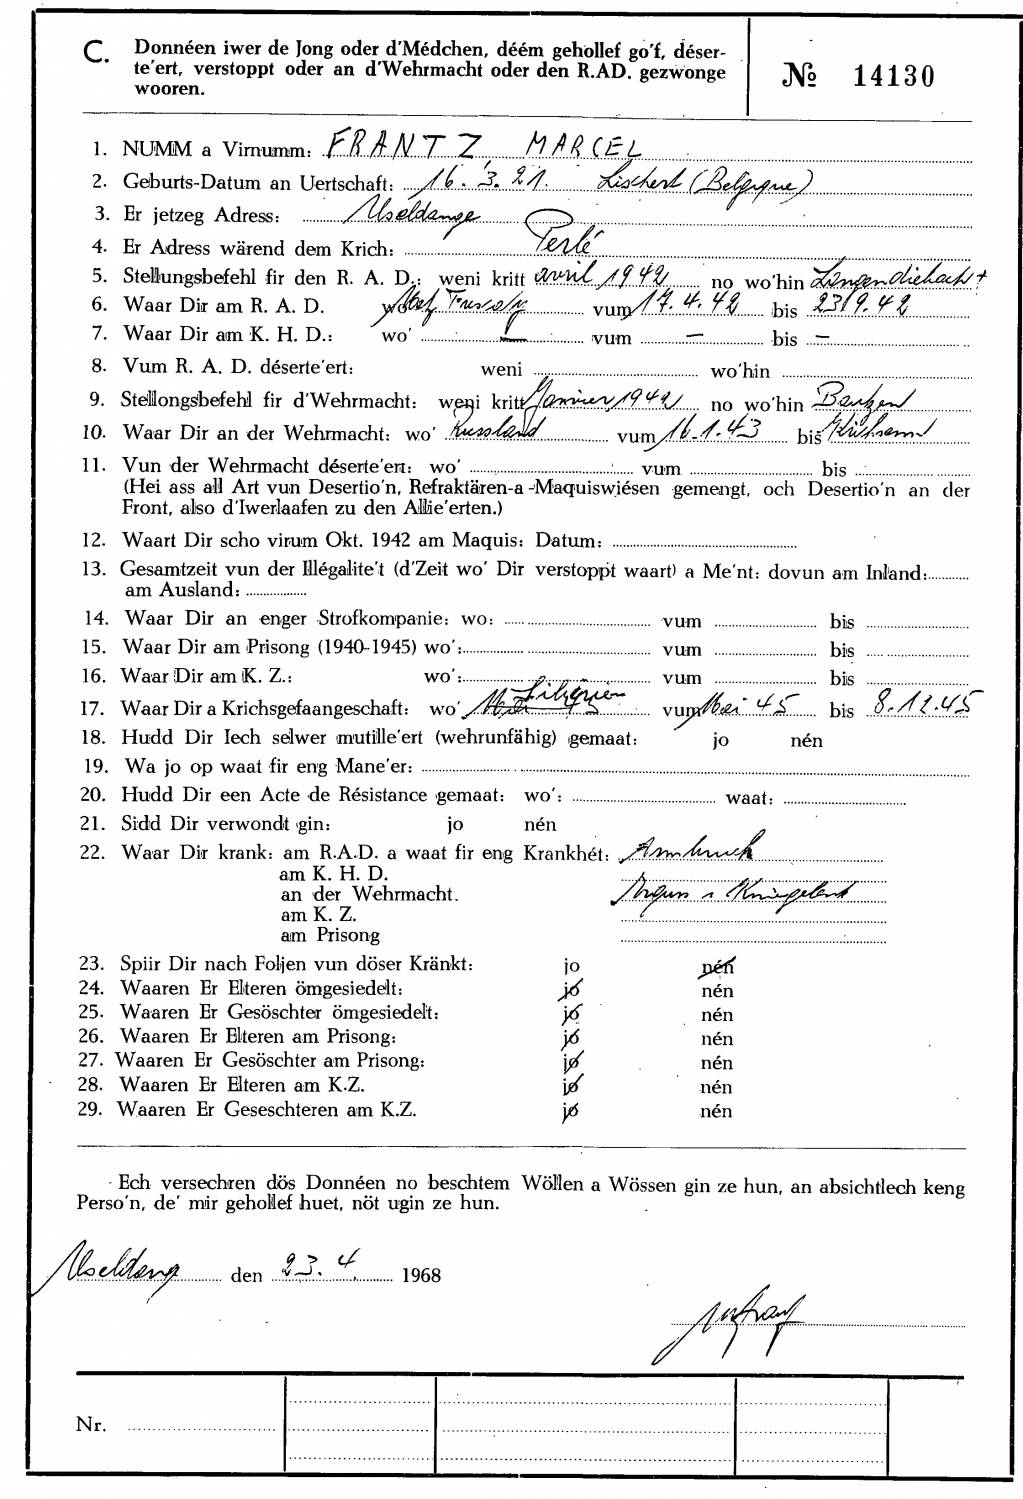 C. Donnéen iwer de Jong oder d'Médchen, déém gehollef go'f, déser-
te'ert, verstoppt oder an d'Wehrmacht oder den R.AD. gezwonge
wooren.
№ 14130
1. NUMM a Virnumm: FRANTZ MARCEL
2. Geburts-Datum an Uertschaft: 16.3.21. Lischert (Belgique)
3. Er jetzeg Adress: Useldange
4. Er Adress wärend dem Krich: Perlé
5. Stellungsbefehl fir den R. A. D.: weni kritt avril 1942 no wo'hin Langendiebach
6. Waar Dir am R. A. D. wo' vum 17.4.42 bis 23/9.42
7. Waar Dir am K. H. D.: wo' — vum — bis —
8. Vum R. A. D. déserte'ert: weni wo'hin
9. Stellongsbefehl fir d'Wehrmacht: weni kritt Janvier 1942 no wo'hin Bautzen
10. Waar Dir an der Wehrmacht: wo' Russland vum 16.1.43 bis
11. Vun der Wehrmacht déserte'ert: wo' vum bis
(Hei ass all Art vun Desertio'n, Refraktären-a-Maquiswiésen gemengt, och Desertio'n an der
Front, also d'Iwerlaafen zu den Allie'erten.)
12. Waart Dir scho virum Okt. 1942 am Maquis: Datum:
13. Gesamtzeit vun der Illégalite't (d'Zeit wo' Dir verstoppt waart) a Me'nt: dovun am Inland:
am Ausland:
14. Waar Dir an enger Strofkompanie: wo: vum bis
15. Waar Dir am Prisong (1940-1945) wo': vum bis
16. Waar Dir am K. Z.: wo': vum bis
17. Waar Dir a Krichsgefaangeschaft: wo' Sibirien vum Mei 45 bis 8.12.45
18. Hudd Dir Iech selwer mutille'ert (wehrunfähig) gemaat: jo nén
19. Wa jo op waat fir eng Mane'er:
20. Hudd Dir een Acte de Résistance gemaat: wo': waat:
21. Sidd Dir verwondt gin: jo nén
22. Waar Dir krank: am R.A.D. a waat fir eng Krankhét: Armbruch
am K. H. D.
an der Wehrmacht.
am K. Z.
am Prisong
23. Spiir Dir nach Foljen vun döser Kränkt: jo nén
24. Waaren Er Elteren ömgesiedelt: jo nén
25. Waaren Er Gesöschter ömgesiedelt: jo nén
26. Waaren Er Elteren am Prisong: jo nén
27. Waaren Er Gesöschter am Prisong: jo nén
28. Waaren Er Elteren am K.Z. jo nén
29. Waaren Er Geseschteren am K.Z. jo nén
Ech versechren dös Donnéen no beschtem Wöllen a Wössen gin ze hun, an absichtlech keng
Perso'n, de' mir gehollef huet, nöt ugin ze hun.
Useldang den 23. 4. 1968
Nr.